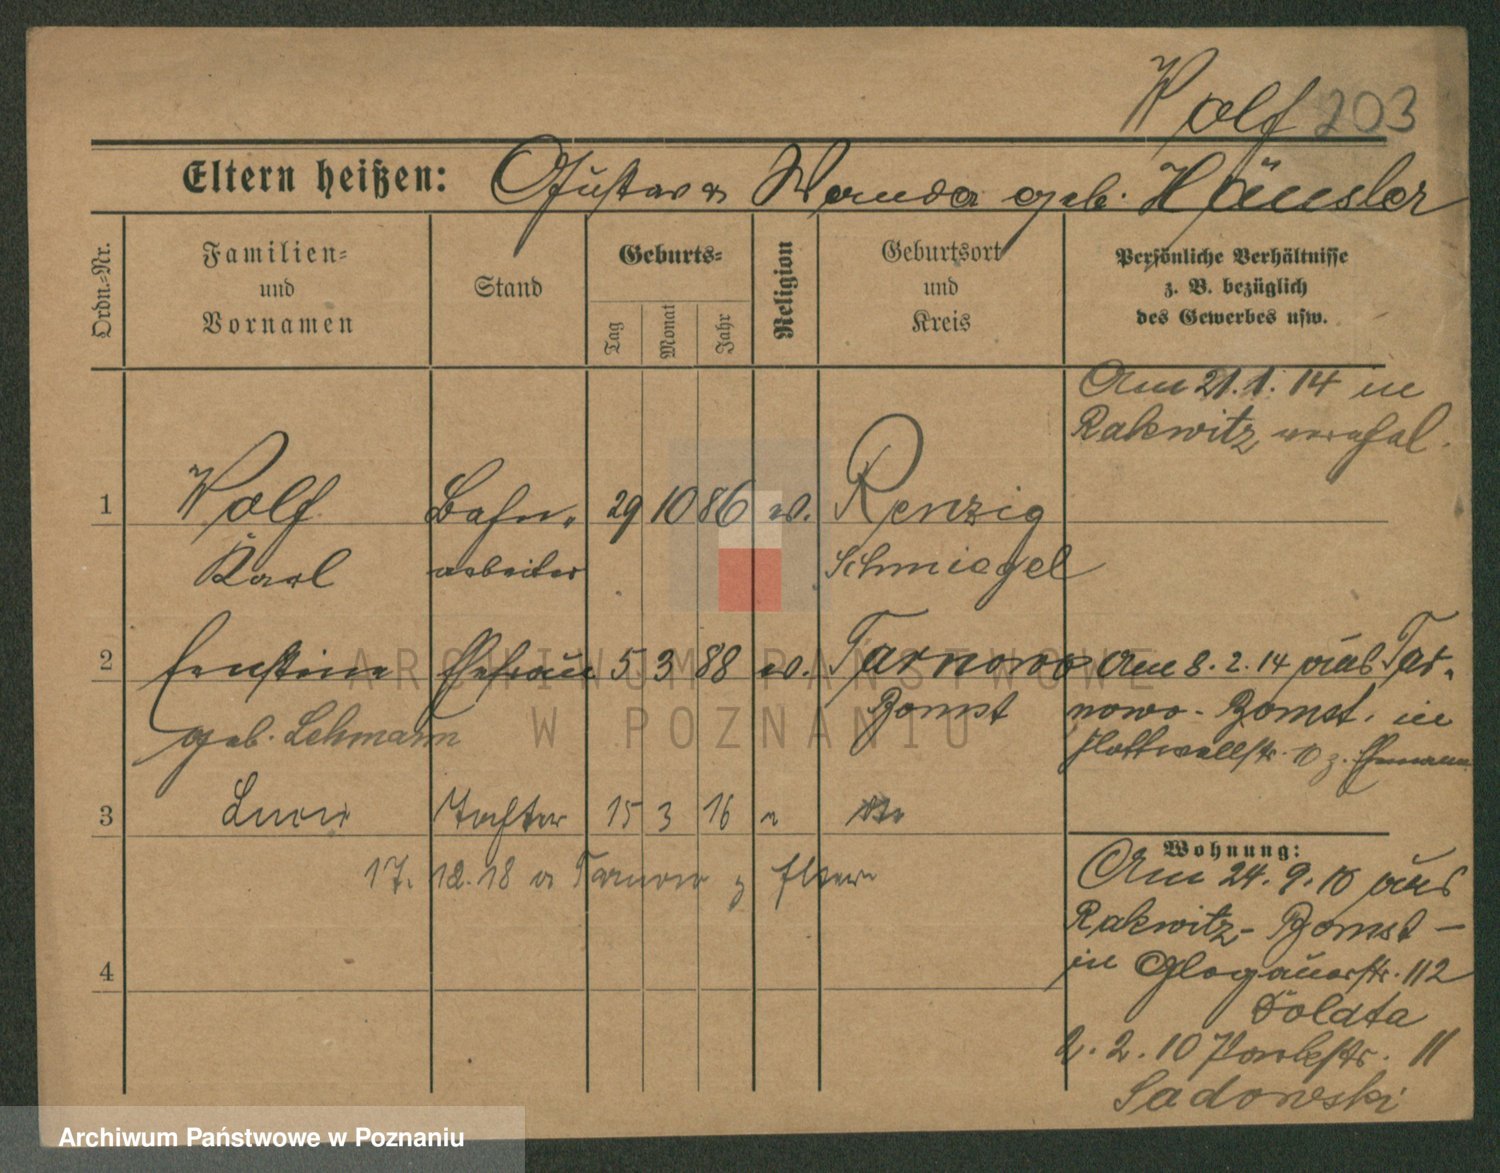 Wolf 203
Eltern heißen: Gustav u Wanda geb. Häusler
Ordn.-Nr.
Familien-
und
Vornamen
Stand
Geburts-
Tag
Monat
Jahr
Religion
Geburtsort
und
Kreis
Persönliche Verhältnisse
z. B. bezüglich
des Gewerbes usw.
Am 21. 1. 14 in
Rakwitz
1 Wolf Bahn- 29 10 86 ev. Renzig
Karl arbeiter Schmiegel
2 Ernstine Ehefrau 5 3 88 ev. Tarnowo
geb. Lehmann Bomst
Am 8. 2. 14 aus Tar-
nowo - Bomst. in
Hottwellstr. 10 z. Ehemann
3 Tochter 15 3 16 "
17. 12. 18 Tarnowo z Eltern
4
Wohnung:
Am 24. 9. 10 aus
Rakwitz - Bomst -
in Glogauerstr. 112
2. 2. 10 11
Sadowski
ARCHIWUM PAŃSTWOWE
W POZNANIU
Archiwum Państwowe w Poznaniu